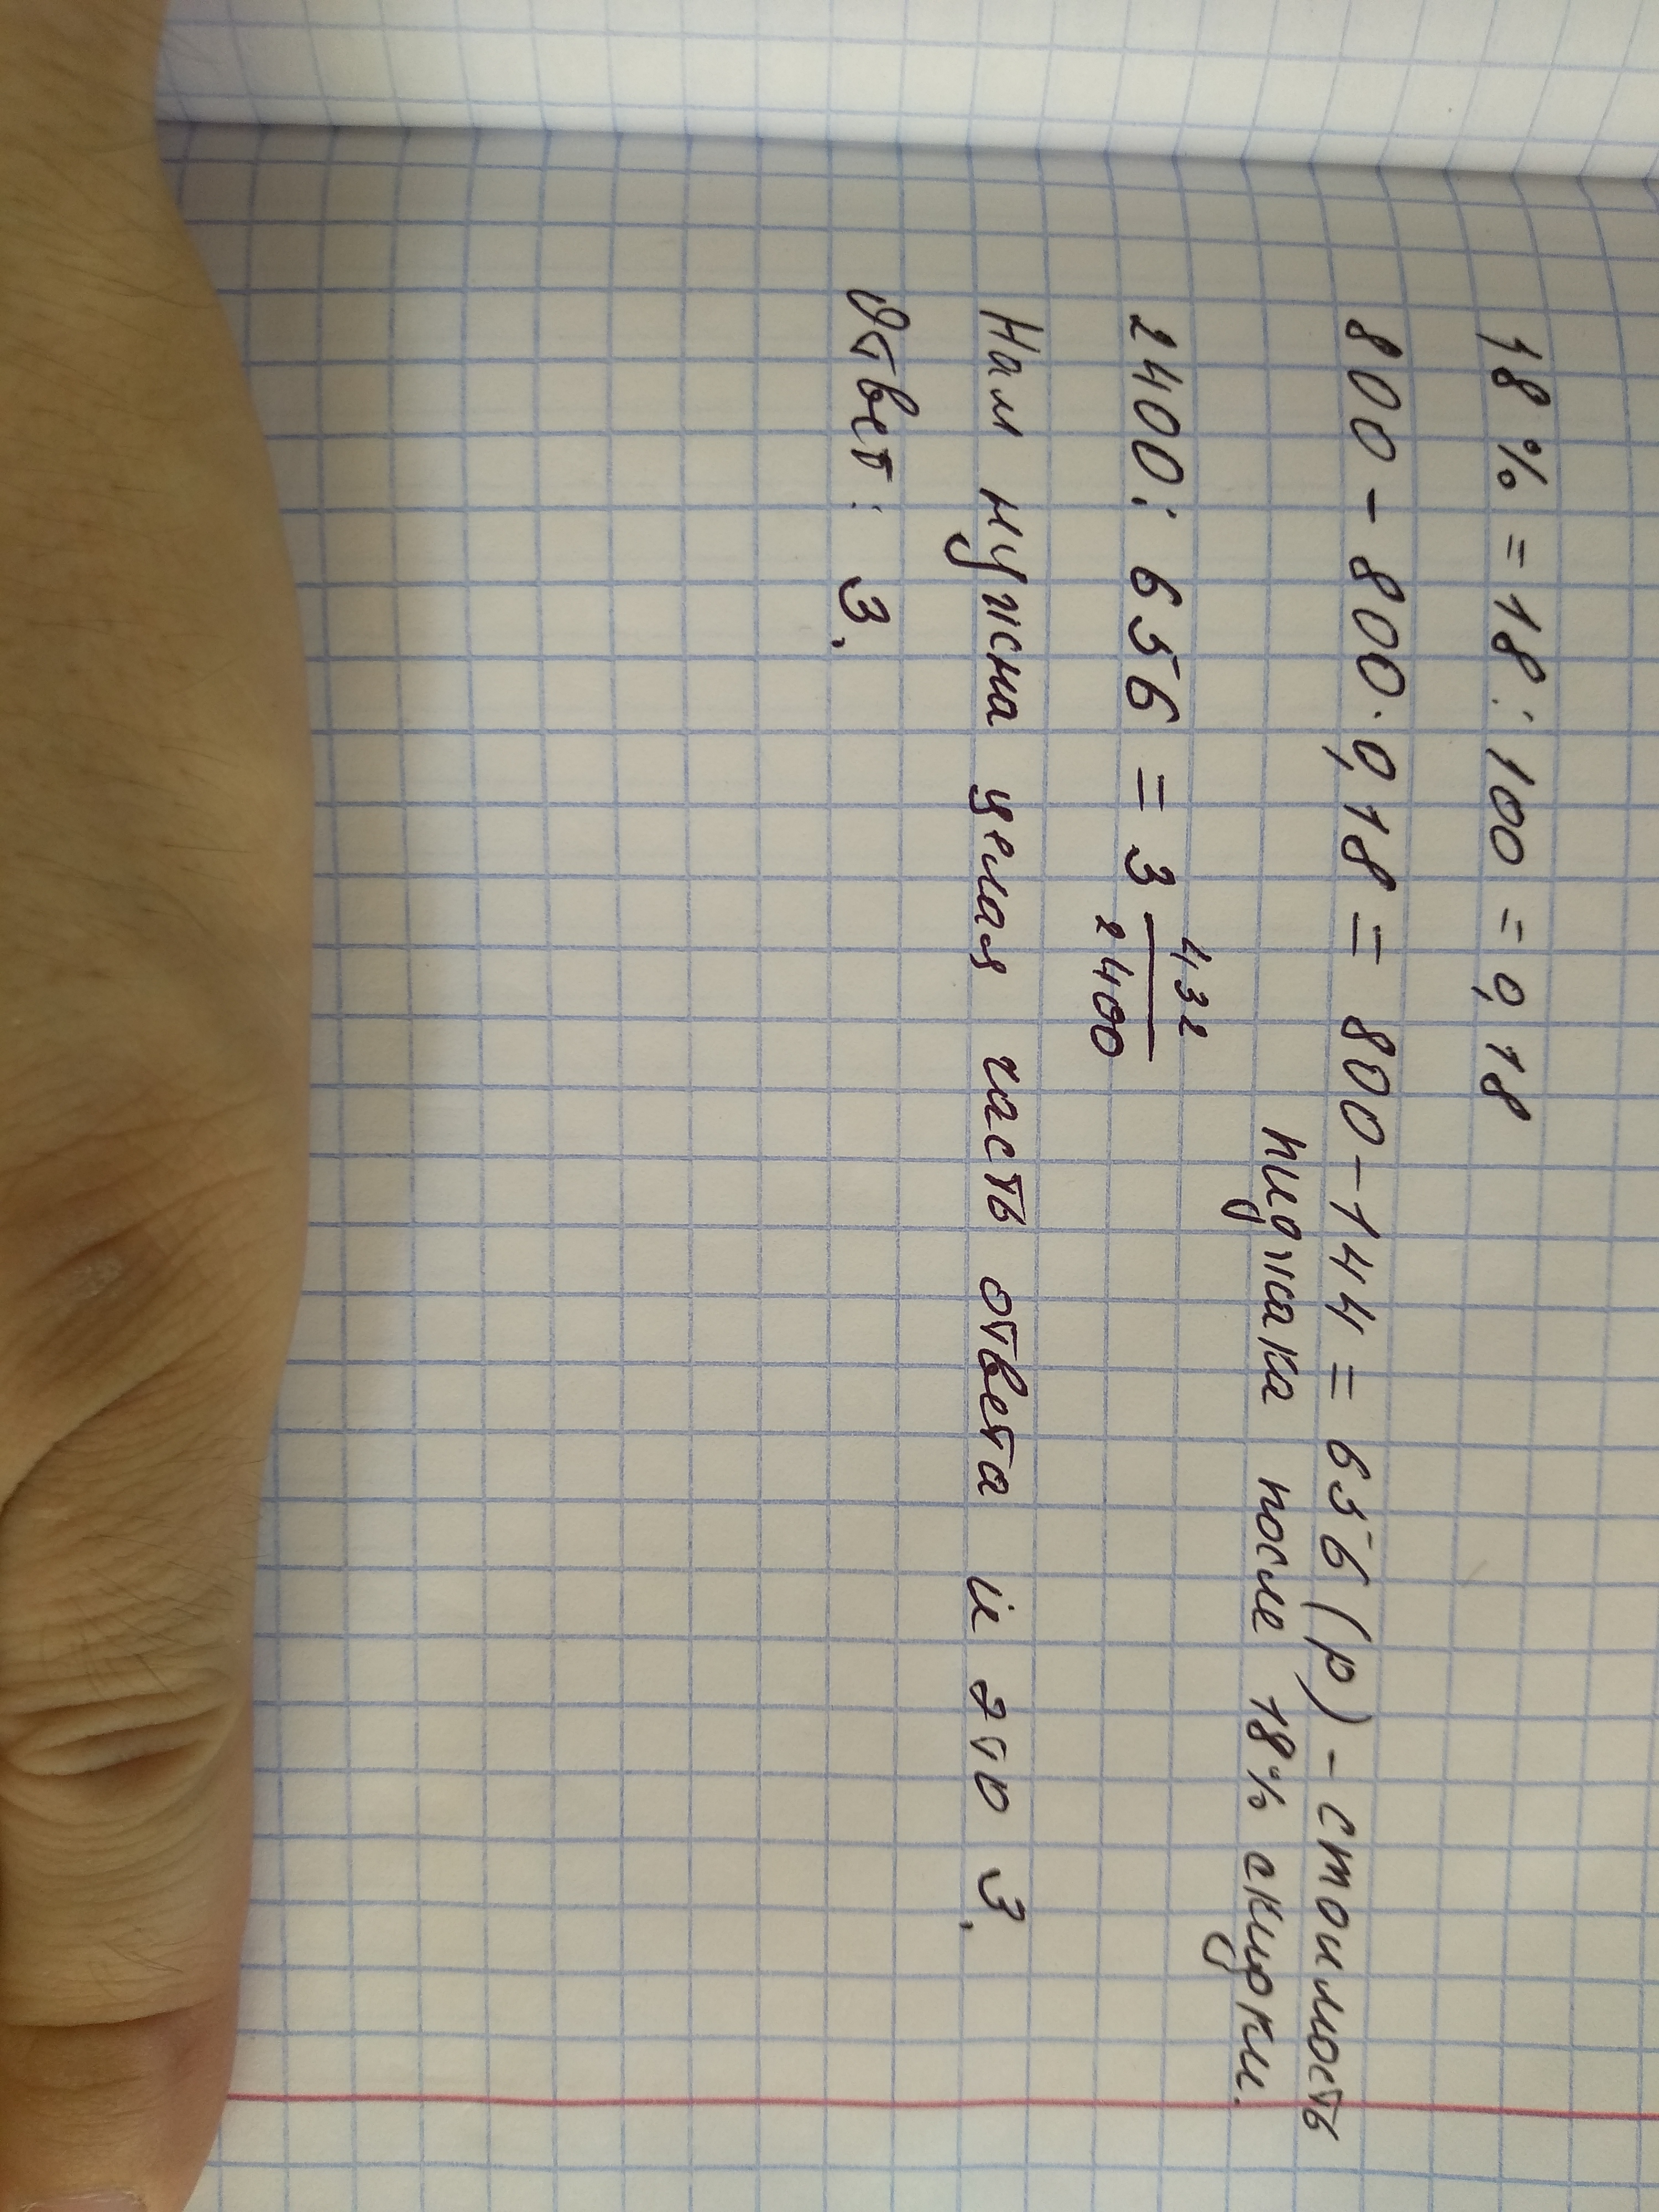 18 % = 18 : 100 = 0,18
800 - 800 · 0,18 = 800 - 144 = 656 (р) - стоимость
пиджака после 18% скидки.
2400 : 656 = 3 432/2400
Нам нужна целая часть ответа и это 3.
Ответ : 3.